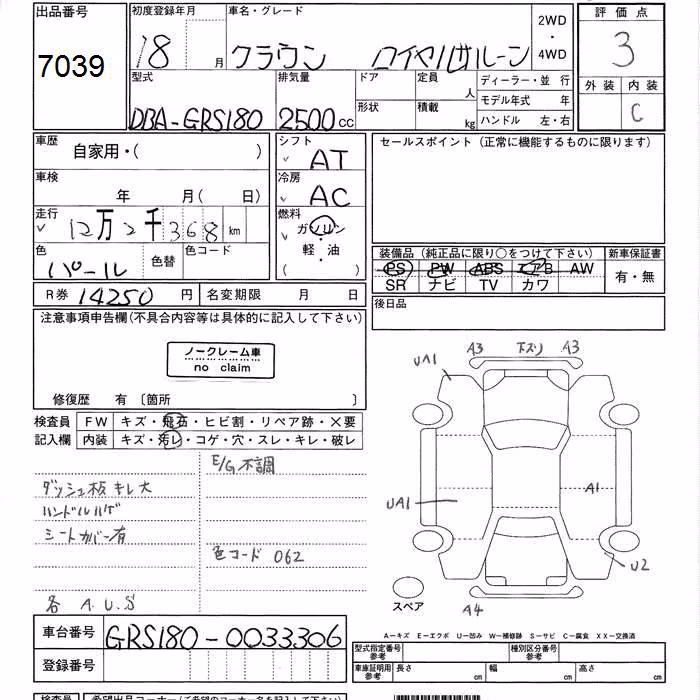 出品番号 初度登録年月 車名・グレード 2WD・4WD 評価点
7039 18 月 クラウン ロイヤルサルーン 3
外装 内装
C
型式 排気量 ドア 定員 人 ディーラー・並行
DBA-GRS180 2500cc 形状 積載 kg モデル年式 年
ハンドル 左・右
車歴 自家用・( ) シフト AT セールスポイント (正常に機能するものに限ります)
車検 年 月( 日) 冷房 AC
走行 12万2千368km 燃料 ガソリン・軽・油 ( )
色 パール 色替 色コード
装備品 (純正品に限り○をつけて下さい) 新車保証書
PS PW ABS エアB AW 有・無
SR ナビ TV カワ
R券 14250円 名変期限 月 日 後日品
注意事項申告欄(不具合内容等は具体的に記入して下さい)
ノークレーム車
no claim
修復歴 有 〔箇所 〕
検査員 FW キズ・飛石・ヒビ割・リペア跡・×要
記入欄 内装 キズ・汚レ・コゲ・穴・スレ・キレ・破レ
E/G不調
ダッシュ板 キレ大
ハンドルハゲ
シートカバー有
色コード 062
各 A.U.S
UA1 A3 下ズリ A3
UA1 A1
U2
スペア A4
A−キズ E−エクボ U−凹み W−補修跡 S−サビ C−腐食 XX−交換済
車台番号 GRS180-0033306
型式指定番号 参考 種別区分番号 参考
登録番号 車庫証明用 参考 長さ cm 幅 cm 高さ cm
検査員 希望出品コーナー(ご希望のコーナー名をご記入下さい)